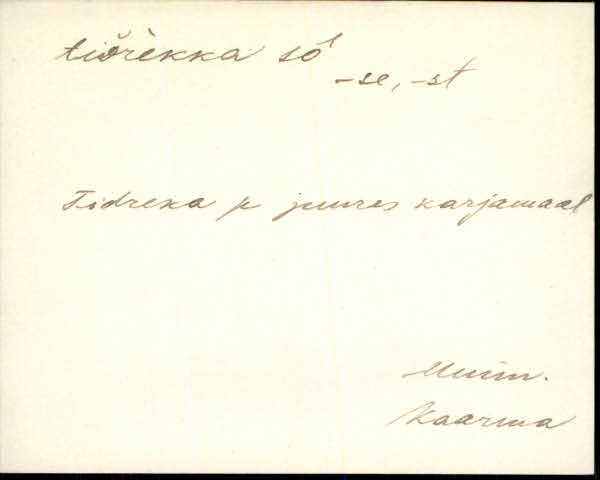 tiδrèkka só
-se, -st
Tidreka p juures karjamaal
Kaarma